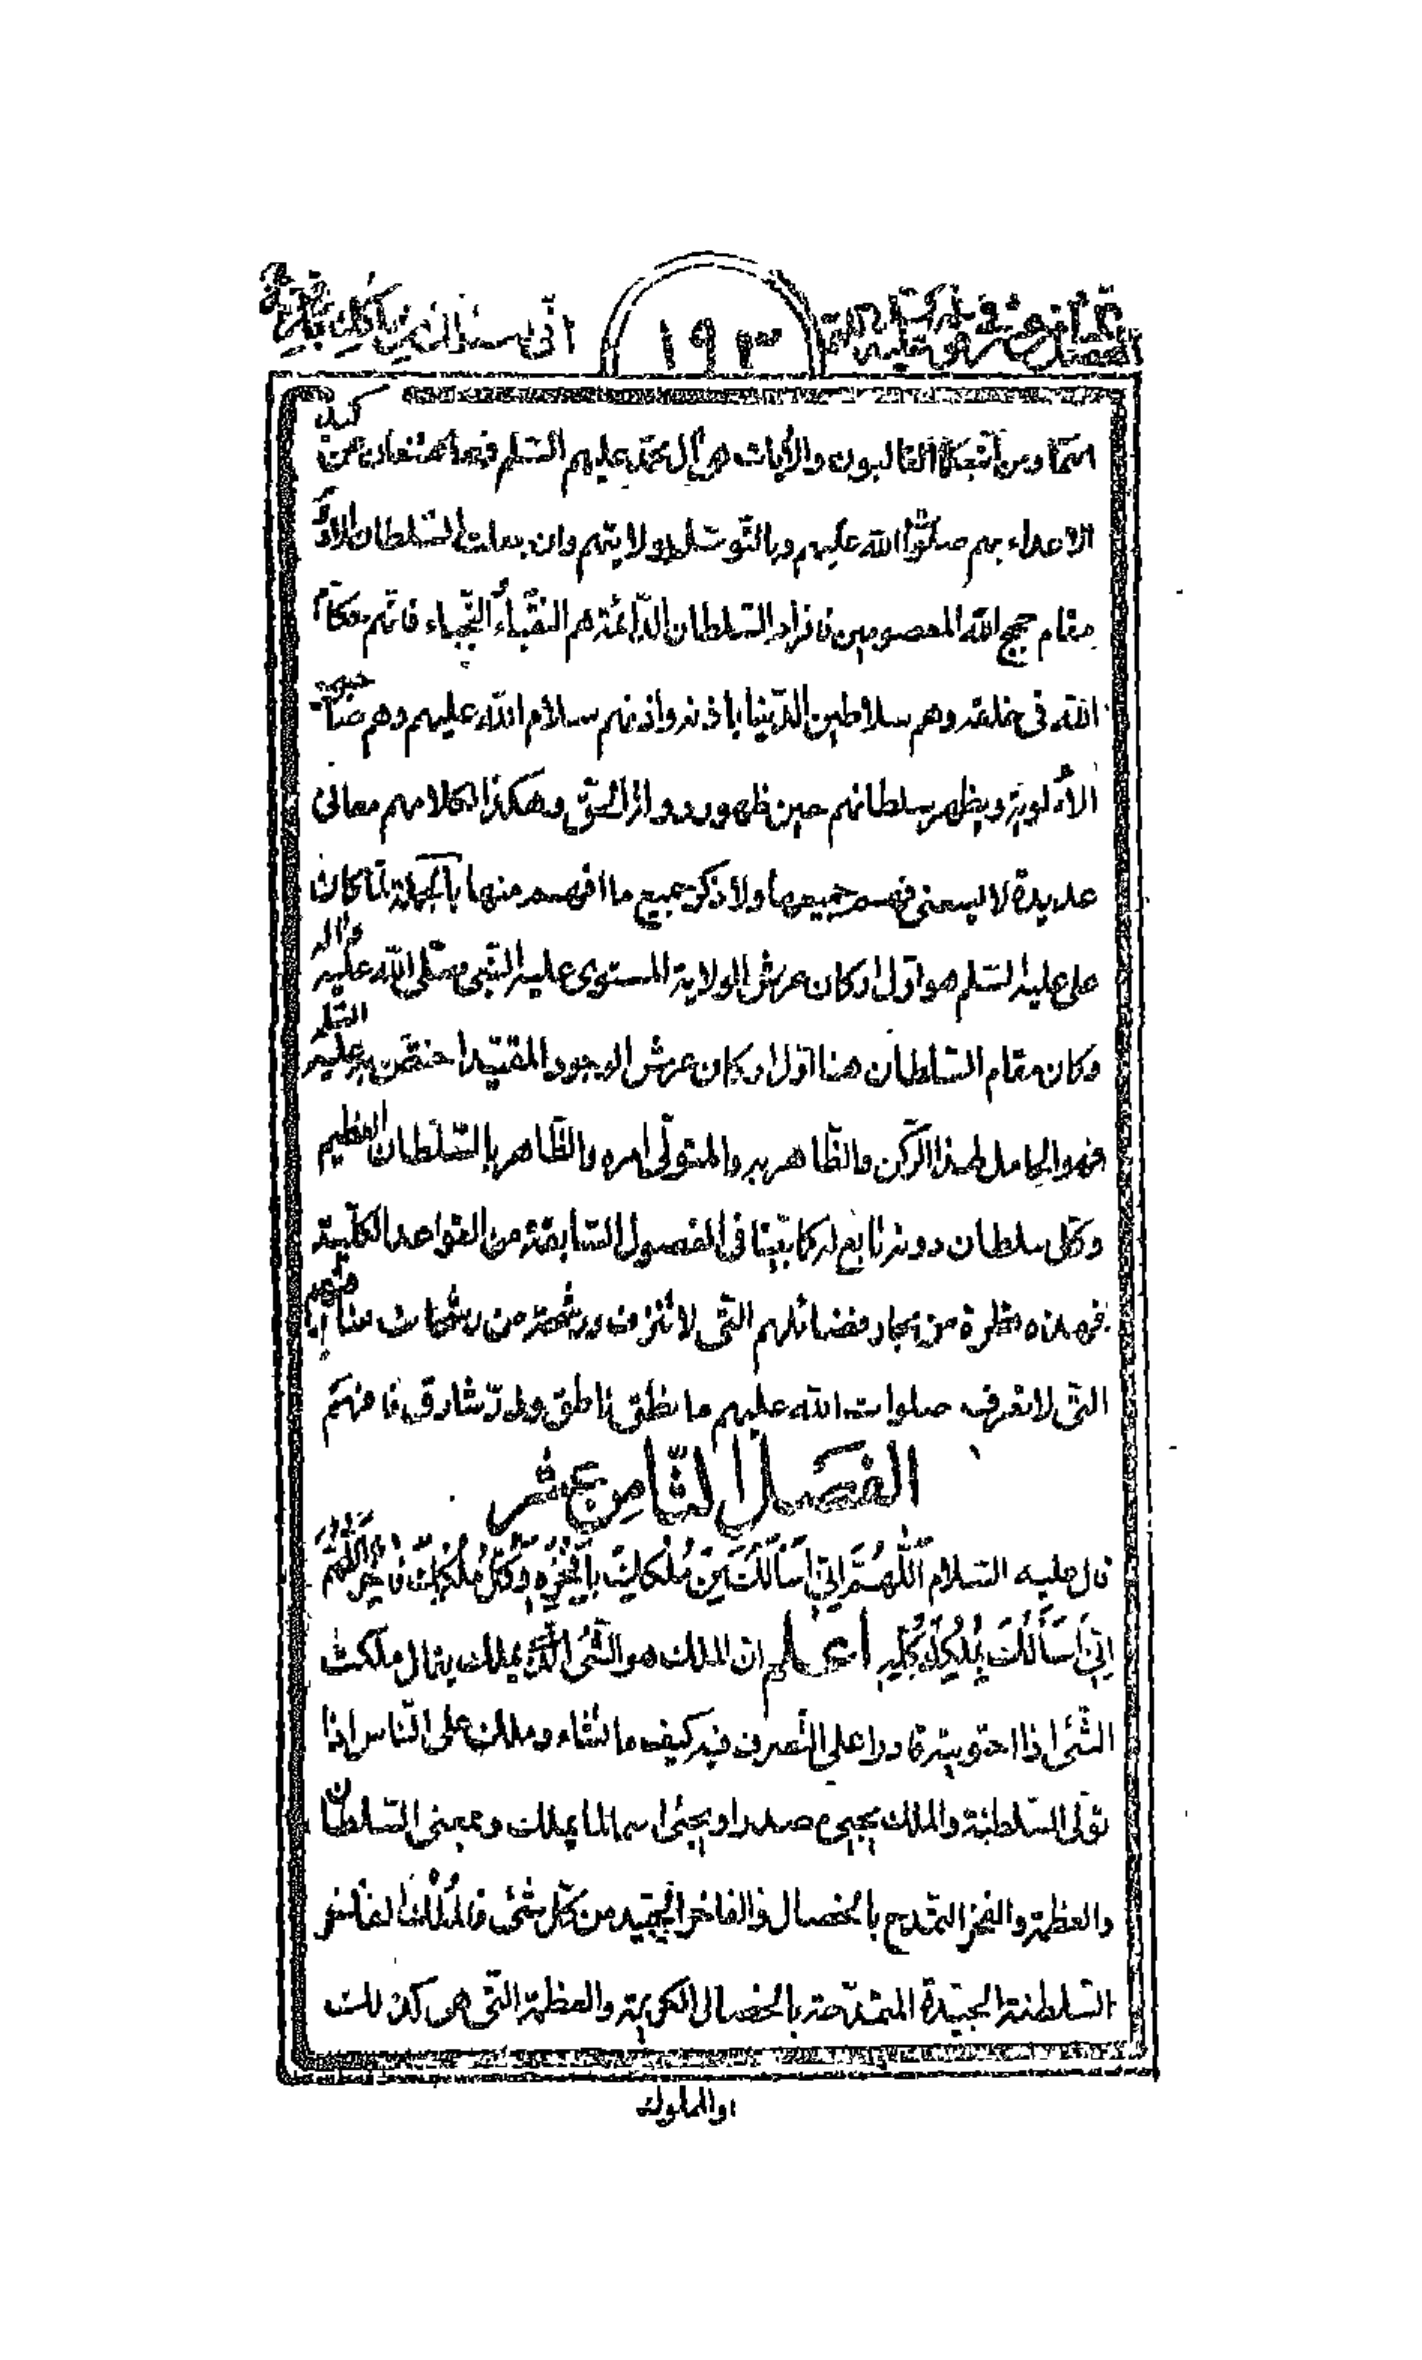 الفصل الثامن عشر فى شرح
١٩٣
انى اسئلك من ملكك بافخره
انتما ومن اتبعكما الغالبون والايات هى آل محمد عليهم السلم فبهما منعا من كيد
الاعداء بهم صلوات الله عليهم وبالتوسل بولايتهم وان بعلت السلطان
مقام حجج الله المعصومين فافراد السلطان الدائمة هم النقباء النجباء فانهم حكام
الله فى خلقه وهم سلاطين الدنيا باذنه واذنهم سلام الله عليهم وهم
ويظهر سلطانهم حين ظهور دولة الحق وهكذا لكلامهم معانى
عديدة لا يسعنى فهم جميعها ولا ذكر جميع ما افهم منها بالجملة لما كان
على عليه السلم هو اول اركان عرش الولاية المستوى عليه النبى صلى الله عليه واله
وكان مقام السلطان هنا اول اركان عرش الوجود المقيد اختص به عليه السلم
فهو الحامل لهذا الركن والظاهر به والمتولى امره والظاهر بالسلطان العظيم
وكل سلطان دونه تابع له كما بينا فى الفصول السابقة من القواعد الكلية
فهذه قطرة من بحار فضائلهم التى لا تنزف ورشحة من رشحات مناقبهم
التى لا تعرف صلوات الله عليهم ما نطق ناطق وذر شارق فافهم
الفصل الثامن عشر
قال عليه السلام اللهم انى اسألك من ملكك بافخره وكل ملكك فاخر اللهم
انى اسألك بملكك كله اعلم ان الملك هو الشئ الذى يملك يقال ملكت
الشئ اذا احتويته قادرا على التصرف فيه كيف ما تشاء وملك على الناس اذا
تولى السلطنة والملك يجيئ مصدرا ويجئ اسما لما يملك وبمعنى السلطان
والعظمة والفخر التمدح بالخصال والفاخر الجيد من كل شئ فالملك الفاخر
السلطنة الجيدة المتمدحة بالخصال الكريمة والعظمة التى هى كذلك
والملوك